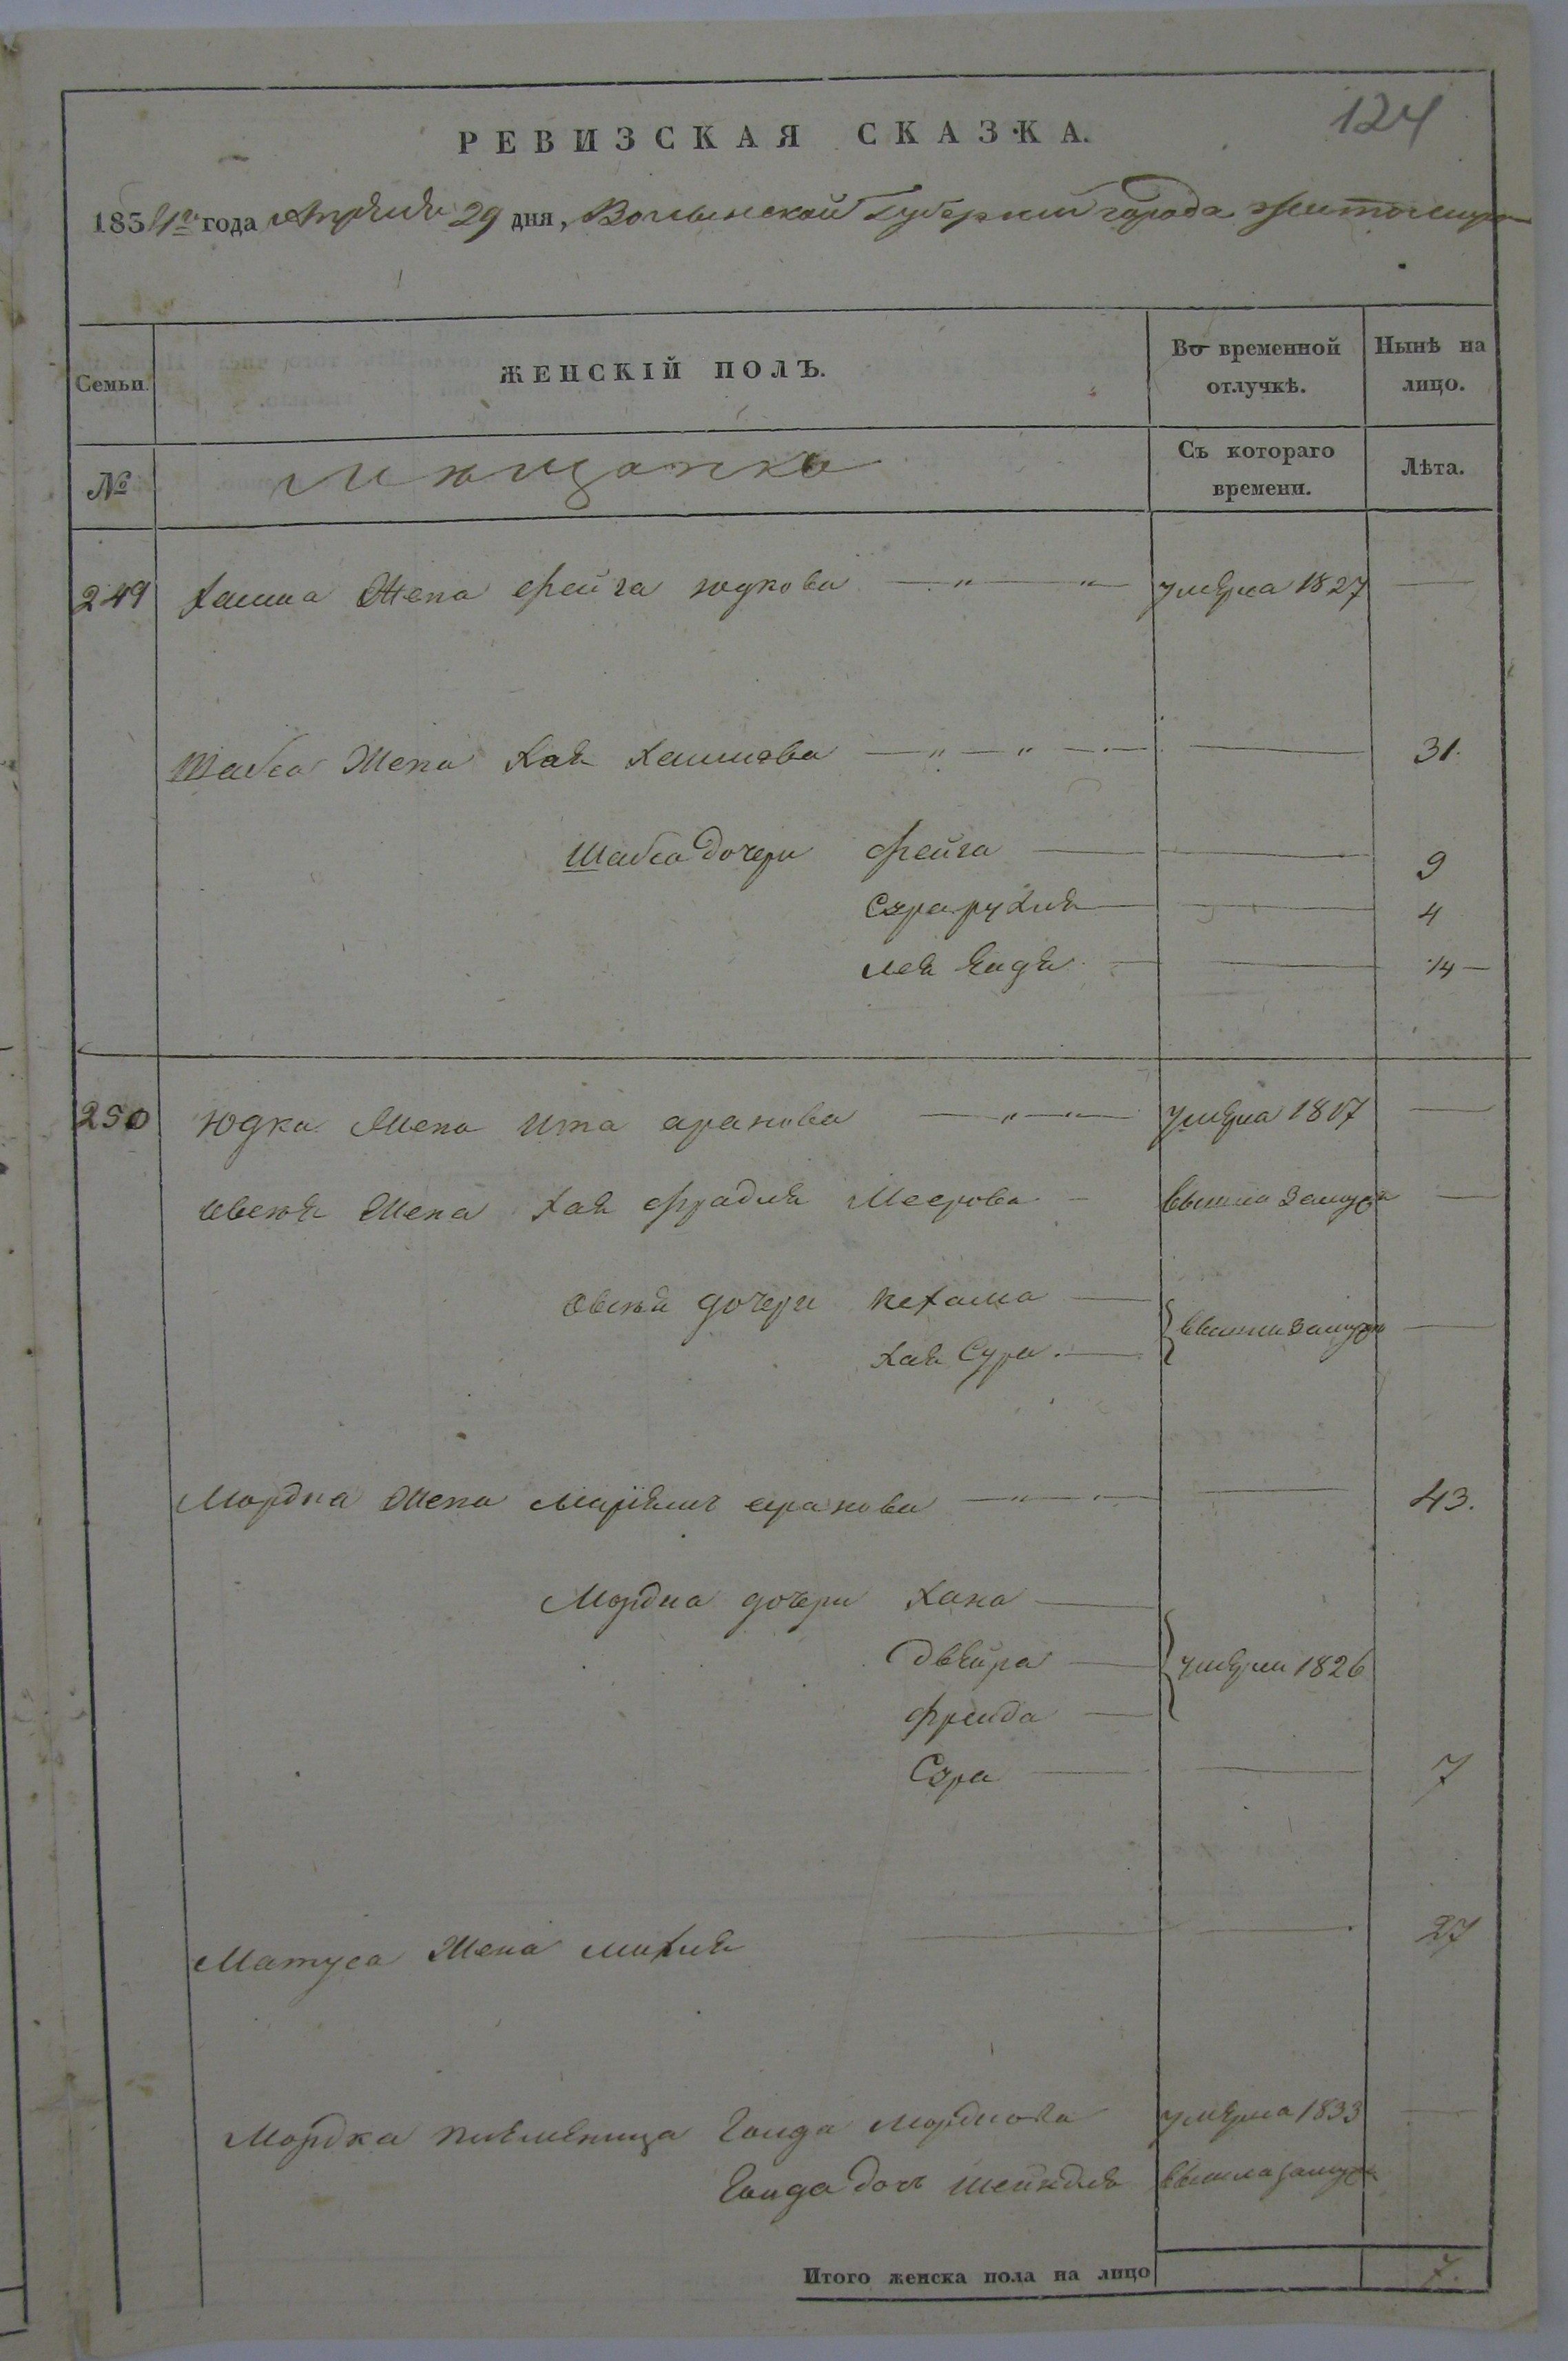 124
РЕВИЗСКАЯ СКАЗКА.
1834го года Апреля 29 дня, Волынской Губернии города Житомира
Семьи. ЖЕНСКІЙ ПОЛЪ. Во временной отлучкѣ. Нынѣ на лицо.
№ Мещанка Съ котораго времени. Лѣта.
249 Хаима Жена Фейга Юдкова — " — " — умерла 1827 —
Шабса Жена Хая Хаимова — " — " — — 31.
Шабса дочери Фейга — — 9
Сура рухля — — 4
Лея — — 1/4 —
250 Юдка Жена Ита аранова — " — " — умерла 1817 —
Жена Хая фрадля Меерова — вышла замужъ —
дочери Нехама — вышли замужъ —
Хая Сура. —
Мордка Жена Маріемъ аранова — " — — 43.
Мордка дочери Хана — умерли 1826
Двейра —
Фрейда —
Сура — — 7
Матуса Жена Михля — — 27
Мордка племеница Голда Мордкова умерла 1833 —
Голда дочь Шейндля вышла замужъ
Итого женска пола на лицо 7.